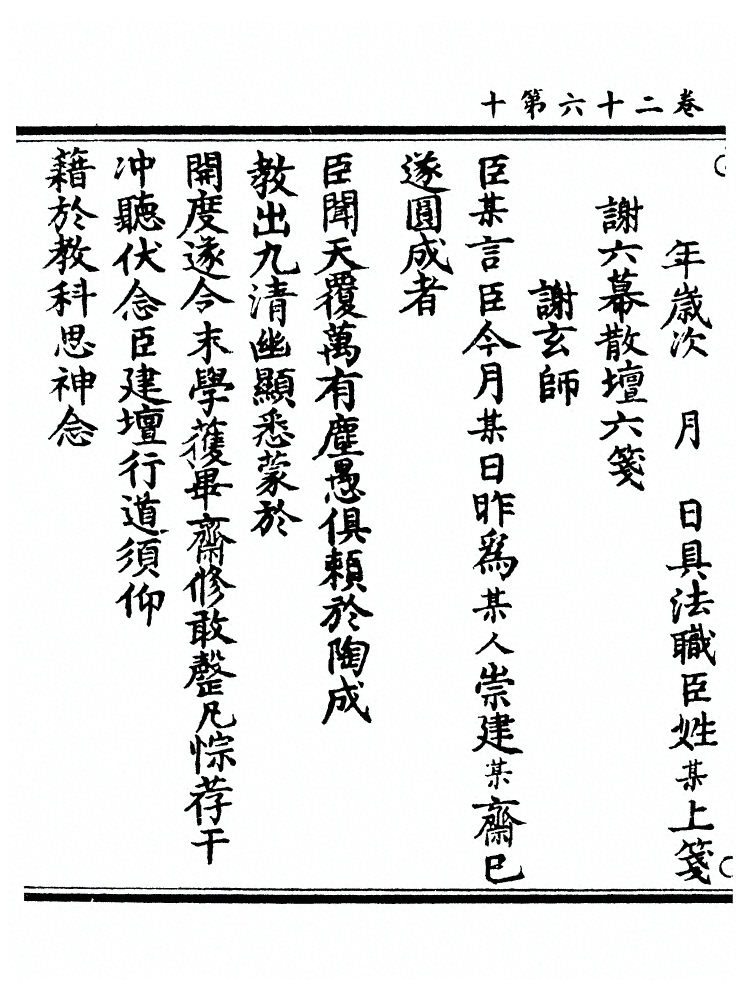 卷二十六第十
年歲次　月　日具法職臣姓某上箋
謝六幕散壇六箋
謝玄師
臣某言臣今月某日昨爲某人崇建某齋已
遂圓成者
臣聞天覆萬有塵愚俱賴於陶成
教出九清幽顯悉蒙於
開度遂令末學獲畢齋修敢罄凡悰荐干
冲聽伏念臣建壇行道須仰
籍於教科思神念